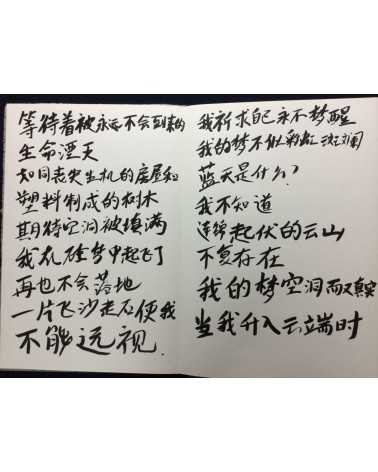 等待着被永远不会到来的
生命湮灭
如同丧失生机的房屋和
塑料制成的树木
期待空洞被填满
我在硅梦中起飞了
再也不会落地
一片飞沙走石使我
不能远视.
我祈求自己永不梦醒
我的梦不似彩虹斑斓
蓝天是什么?
我不知道
连绵起伏的云山
不复存在
我的梦空洞而又真实
当我升入云端时